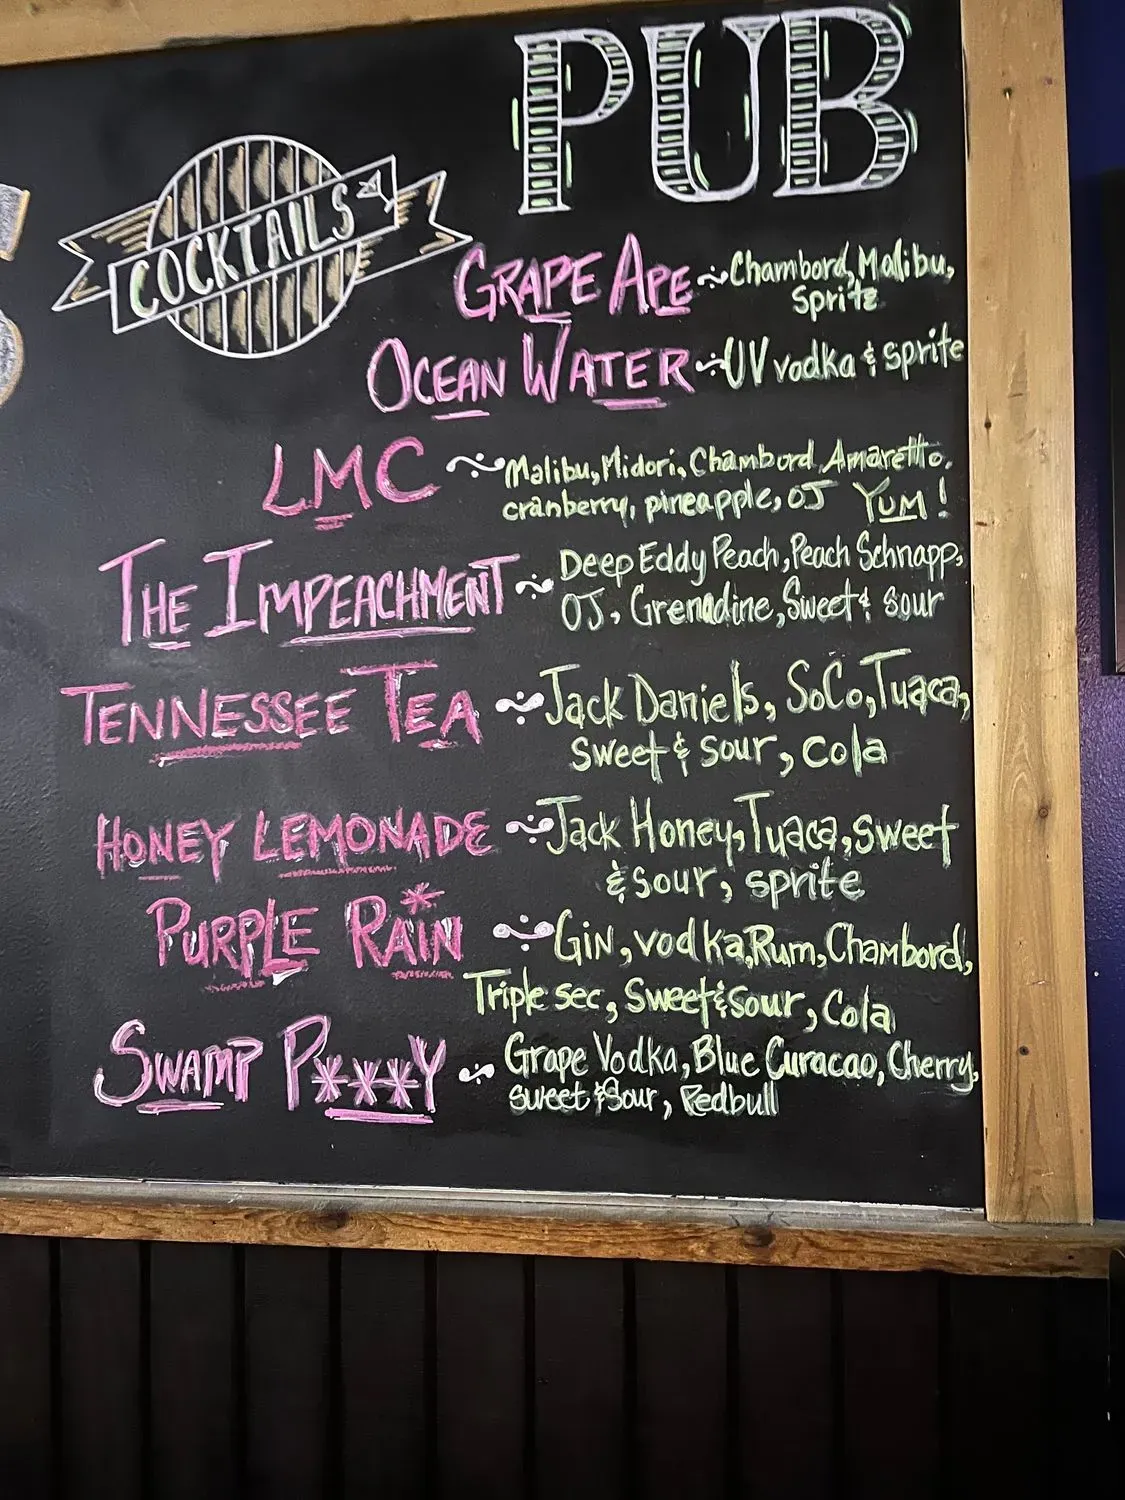 PUB
COCKTAILS
GRAPE APE ~ Chambord, Malibu,
Sprite
OCEAN WATER ~ UV vodka & sprite
LMC ~ Malibu, Midori, Chambord, Amaretto,
cranberry, pineapple, OJ YUM!
THE IMPEACHMENT ~ Deep Eddy Peach, Peach Schnapp,
OJ, Grenadine, Sweet & Sour
TENNESSEE TEA ~ Jack Daniels, SoCo, Tuaca,
Sweet & Sour, Cola
HONEY LEMONADE ~ Jack Honey, Tuaca, Sweet
& Sour, sprite
PURPLE RAIN ~ Gin, vodka, Rum, Chambord,
Triple sec, Sweet & Sour, Cola
SWAMP P***Y ~ Grape Vodka, Blue Curacao, Cherry,
sweet & Sour, Redbull